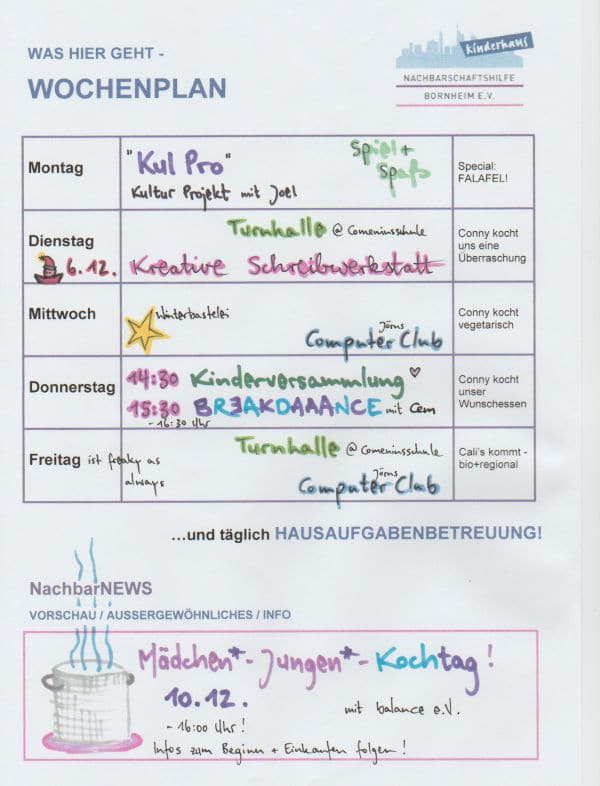 WAS HIER GEHT -
WOCHENPLAN
kinderhaus
NACHBARSCHAFTSHILFE
BORNHEIM E.V.
Montag
"Kul Pro"
Kultur Projekt mit Joel
Spiel +
Spaß
Special:
FALAFEL!
Dienstag
6.12.
Turnhalle @ Comeniusschule
Kreative Schreibwerkstatt
Conny kocht
uns eine
Überraschung
Mittwoch
Winterbastelei
Jörns
Computer Club
Conny kocht
vegetarisch
Donnerstag
14:30 Kinderversammlung
15:30 BREAKDAAANCE mit Cem
- 16:30 Uhr
Conny kocht
unser
Wunschessen
Freitag ist freaky as
always
Turnhalle @ Comeniusschule
Jörns
Computer Club
Cali's kommt -
bio+regional
...und täglich HAUSAUFGABENBETREUUNG!
NachbarNEWS
VORSCHAU / AUSSERGEWÖHNLICHES / INFO
Mädchen*-Jungen*-Kochtag!
10.12.
- 16:00 Uhr!
mit balance e.V.
Infos zum Beginn + Einkaufen folgen!